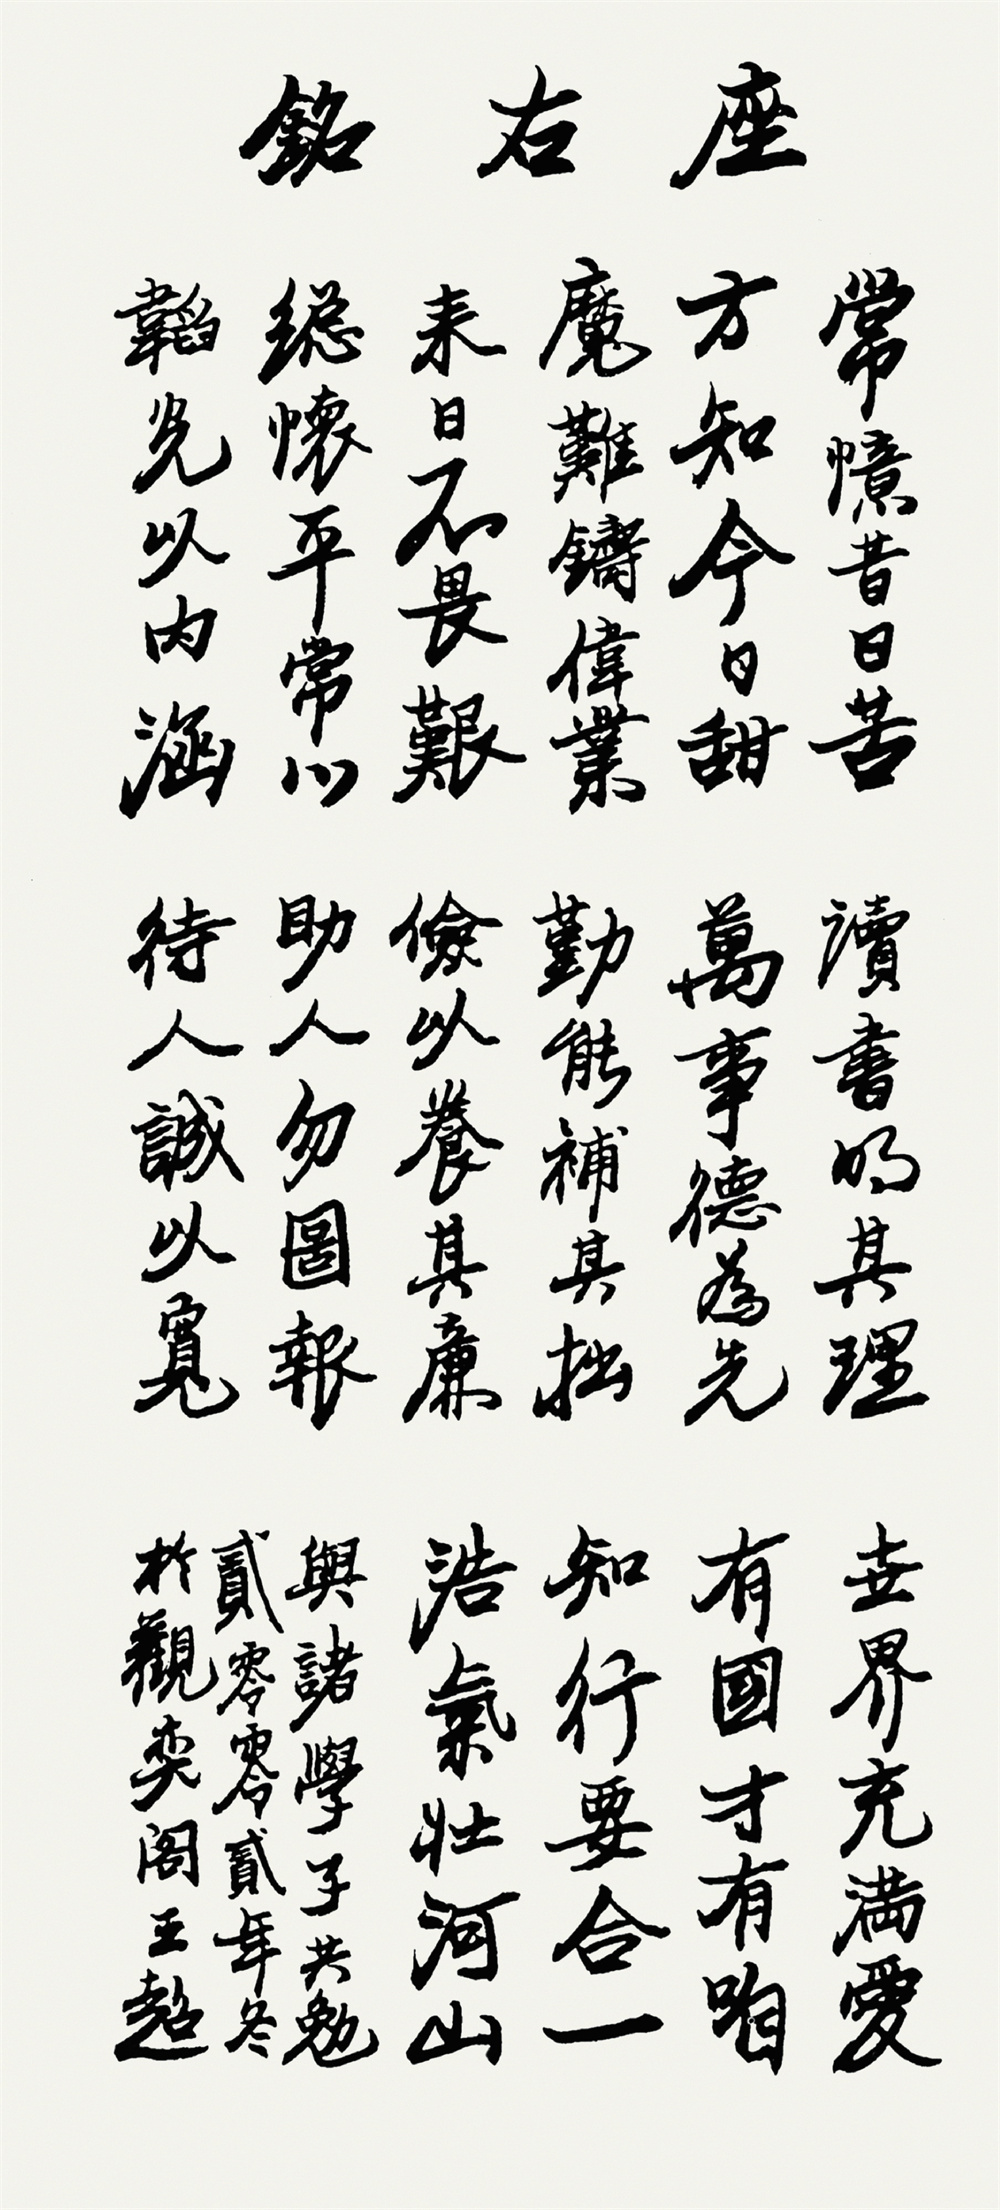 座右銘
常憶昔日苦
方知今日甜
魔難鑄偉業
来日不畏艱
総懷平常心
韜光以內涵
讀書明其理
萬事德為先
勤能補其拙
儉以養其廉
助人勿圖報
待人誠以寬
世界充満愛
有國才有咱
知行要合一
浩氣壯河山
與諸學子共勉
貳零零貳年冬
於觀奕阁王超